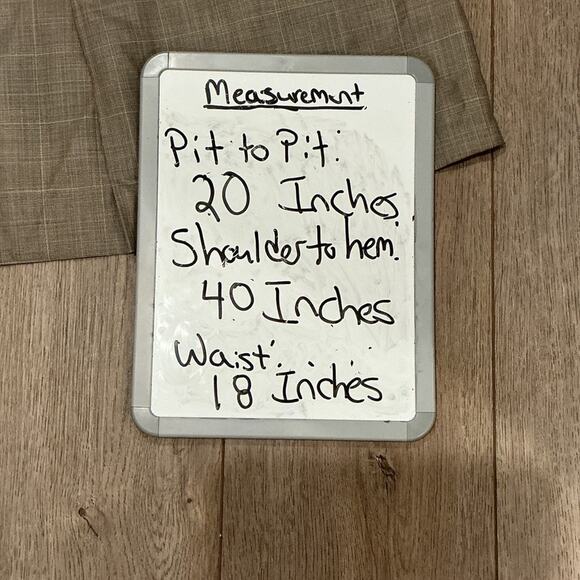 Measurement
Pit to Pit:
20 Inches
Shoulder to hem:
40 Inches
Waist:
18 Inches